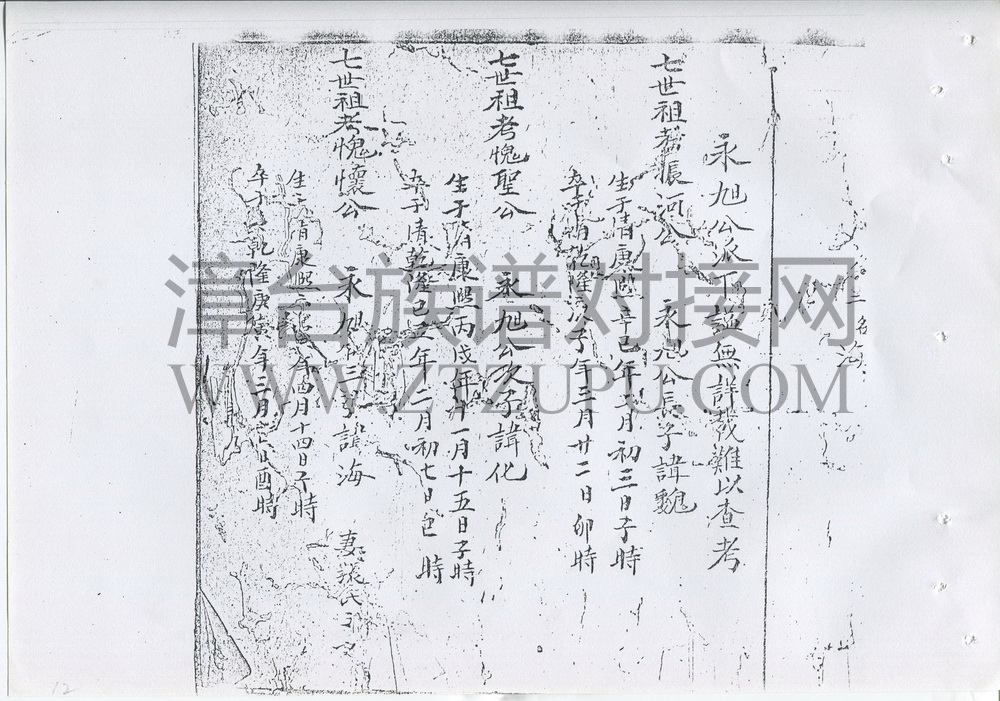 永旭公派下譜無詳載難以查考
七世祖考振河公 永旭公長子諱魏
生于清康熙辛巳年 月初三日子時
卒于清乾隆 子年三月廿二日卯時
七世祖考愧聖公 永旭公次子諱化
生于清康熙丙戌年十一月十五日子時
卒于清乾隆己 年二月初七日 時
七世祖考愧懷公 永旭公三子諱海
生 清康熙 年四月十四日子時
卒于 乾隆庚寅年三月 日酉時
妻張氏
漳台族谱对接网
WWW.ZTZUPU.COM
12